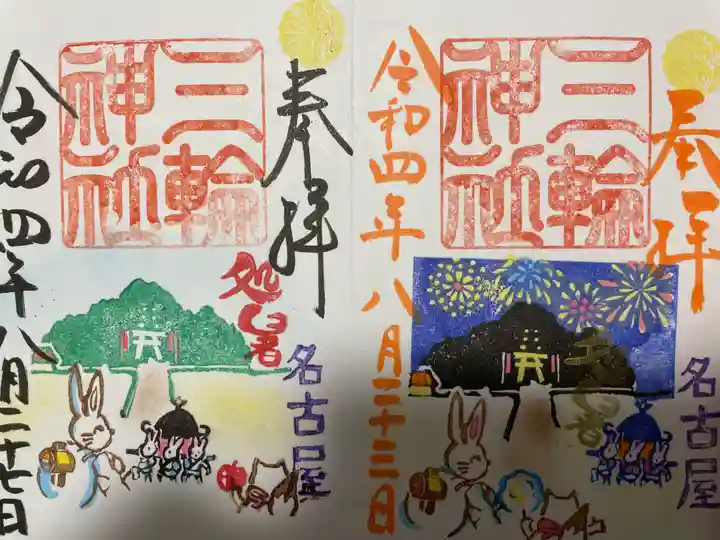 奉拝
三輪
神社
処暑
名古屋
令和四年八月二十三日
奉拝
三輪
神社
処暑
名古屋
令和四年八月二十七日